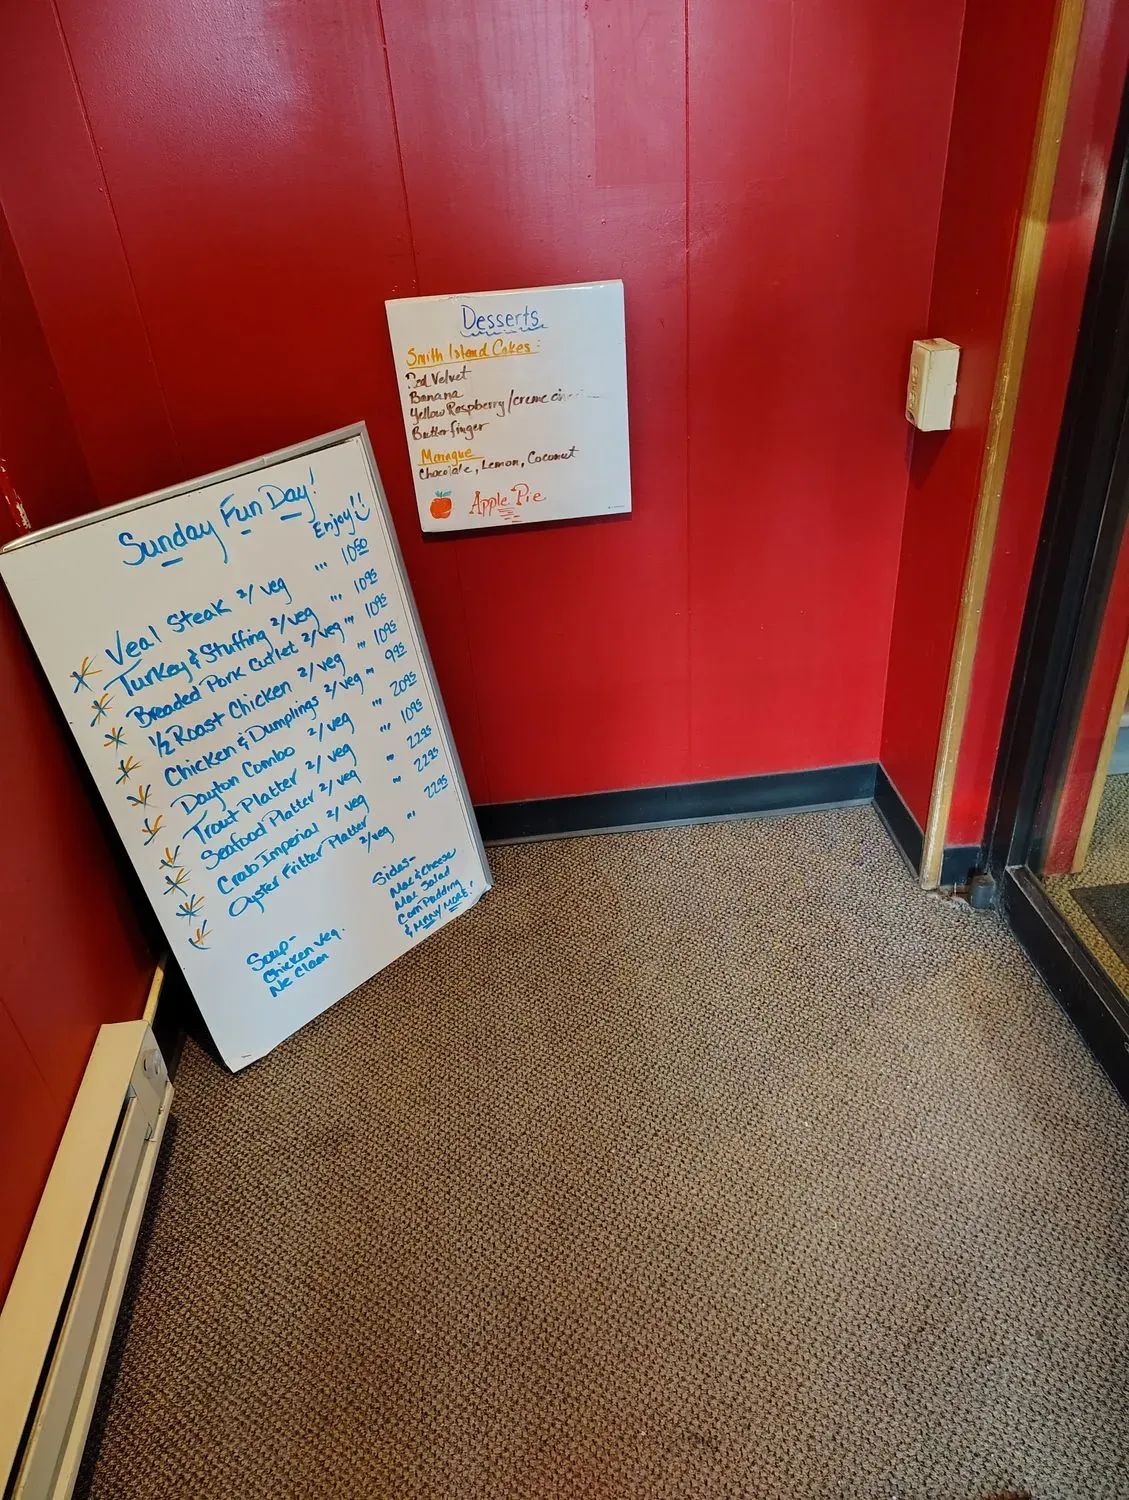 Sunday Fun Day!
Enjoy!
Veal Steak 2/veg ... 10.50
Turkey & Stuffing 2/veg ... 10.95
Breaded Pork Cutlet 2/veg ... 10.95
1/2 Roast Chicken 2/veg ... 10.95
Chicken & Dumplings 2/veg ... 9.95
Dayton Combo 2/veg ... 20.95
Trout Platter 2/veg ... 10.95
Seafood Platter 2/veg ... 22.95
Crab Imperial 2/veg ... 22.95
Oyster Fritter Platter 2/veg ... 22.95
Sides-
Mac & Cheese
Mac Salad
Corn Pudding
& MANY MORE!
Soup-
Chicken Veg.
Ne Clam
Desserts
Smith Island Cakes:
Red Velvet
Banana
Yellow Raspberry/creme
Butterfinger
Meringue
Chocolate, Lemon, Coconut
Apple Pie